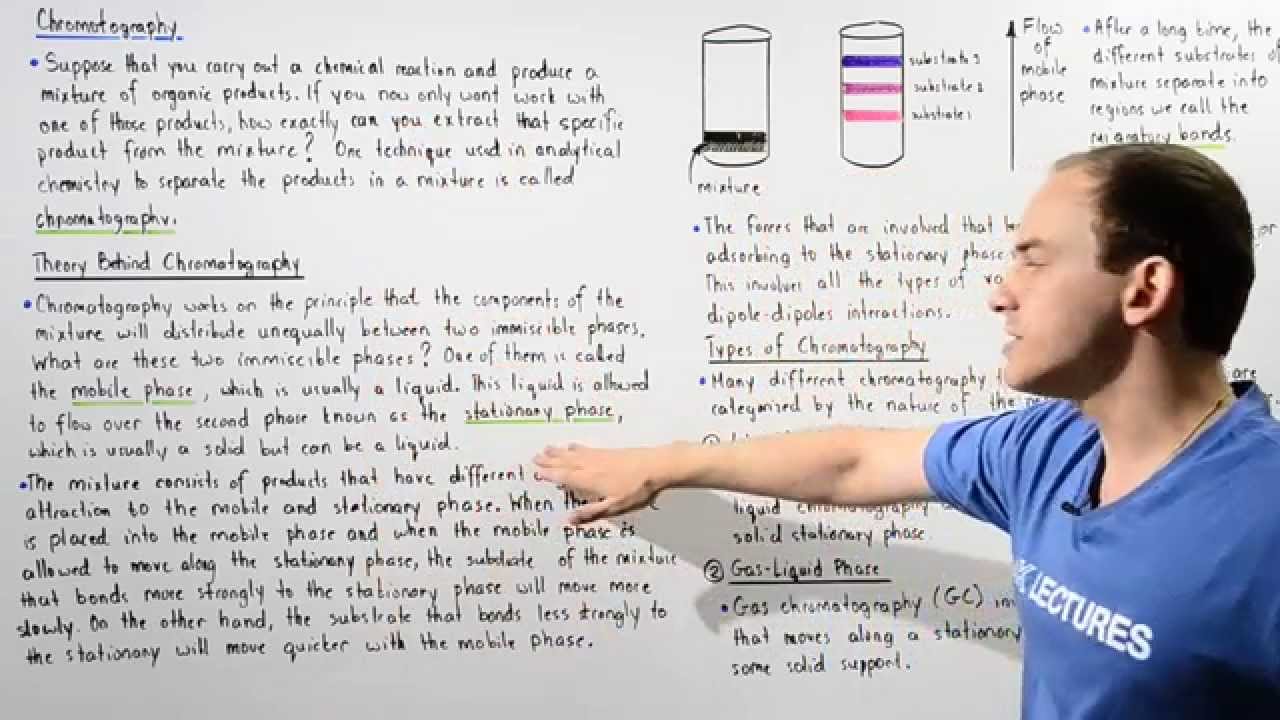 Chromatography
• Suppose that you carry out a chemical reaction and produce a
mixture of organic products. If you now only want work with
one of those products, how exactly can you extract that specific
product from the mixture? One technique used in analytical
chemistry to separate the products in a mixture is called
chromatography.
Theory Behind Chromatography
• Chromatography works on the principle that the components of the
mixture will distribute unequally between two immiscible phases.
What are these two immiscible phases? One of them is called
the mobile phase, which is usually a liquid. This liquid is allowed
to flow over the second phase known as the stationary phase,
which is usually a solid but can be a liquid.
• The mixture consists of products that have different
attraction to the mobile and stationary phase. When the
is placed into the mobile phase and when the mobile phase is
allowed to move along the stationary phase, the substrate of the mixture
that bonds more strongly to the stationary phase will move more
slowly. On the other hand, the substrate that bonds less strongly to
the stationary will move quicker with the mobile phase.
mixture
substrate 3
substrate 2
substrate 1
Flow
of
mobile
phase
• After a long time, the
different substrates of
mixture separate into
regions we call the
migratory bands.
• The forces that are involved that
adsorbing to the stationary phase
This involves all the types of
dipole-dipoles interactions.
Types of Chromatography
• Many different chromatography are
categorized by the nature of the
liquid chromatography
solid stationary phase.
② Gas-Liquid Phase
• Gas chromatography (GC)
that moves along a stationary
some solid support.
LECTURES